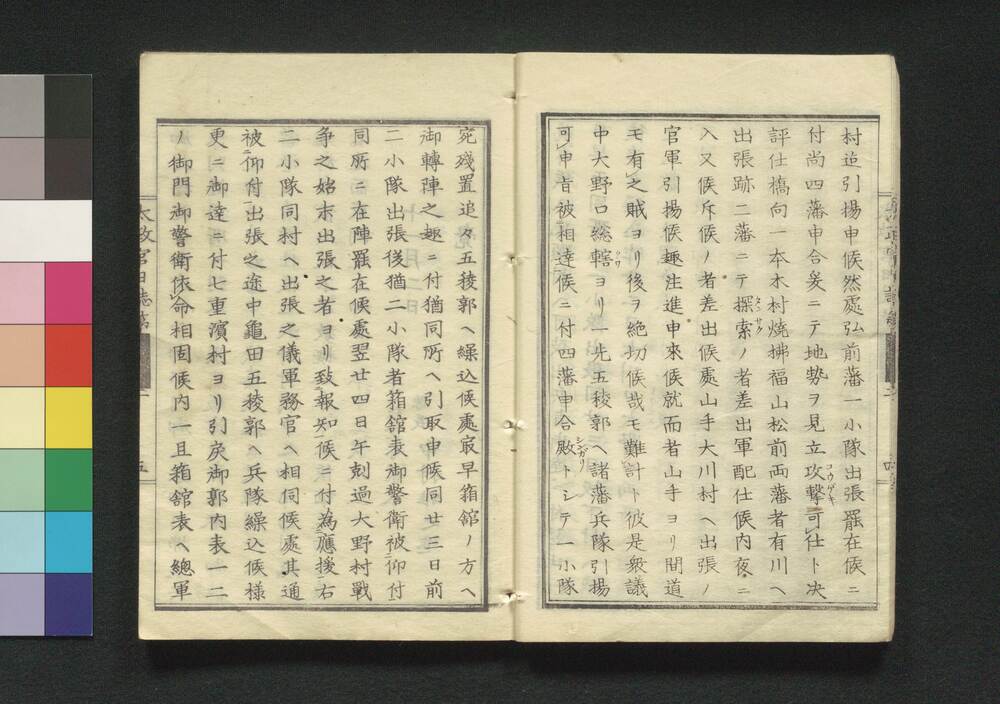 村迄引揚申候然處弘前藩一小隊出張罷在候ニ
付尚四藩申合爰ニテ地勢ヲ見立攻撃可仕ト決
コウゲキ
評仕橋向一本木村燒拂福山松前両藩者有川ヘ
出張跡二藩ニテ探索ノ者差出軍配仕候内夜ニ
タンサク
入又候斥候ノ者差出候處山手大川村ヘ出張ノ
官軍引揚候趣注進申來候就而者山手ヨリ間道
モ有之賊ヨリ後ヲ絶切候哉モ難計ト彼是衆議
中大野口総轄ヨリ一先五稜郭ヘ諸藩兵隊引揚
可申旨被相達候ニ付四藩申合殿トシテ一小隊
シンガリ
宛殘置追々五稜郭ヘ繰込候處㝡早箱舘ノ方ヘ
御轉陣之趣ニ付猶同所ヘ引取申候同廿三日前
二小隊出張後猶二小隊者箱舘表御警衛被仰付
同所ニ在陣罷在候處翌廿四日午刻過大野村戰
争之始末出張之者ヨリ致報知候ニ付為應援右
二小隊同村ヘ出張之儀軍務官ヘ相伺候處其通
被仰付出張之途中龜田五稜郭ヘ兵隊繰込候様
更ニ御達ニ付七重濱村ヨリ引戻御郭内表一二
ノ御門御警衛依命相固候内一旦箱舘表ヘ總軍
太政官日誌第
五